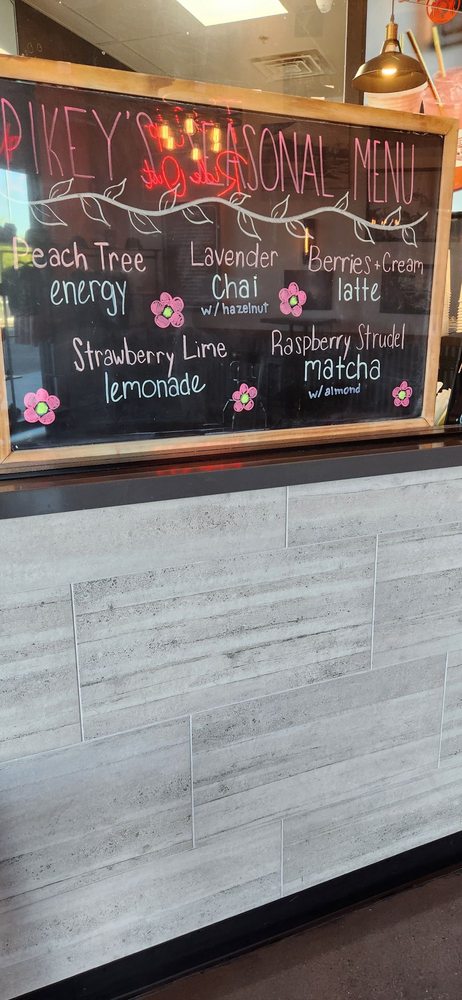 PIKEY'S SEASONAL MENU
Peach Tree
energy
Lavender
Chai
w/ hazelnut
Berries + Cream
latte
Strawberry Lime
lemonade
Raspberry Strudel
matcha
w/ almond